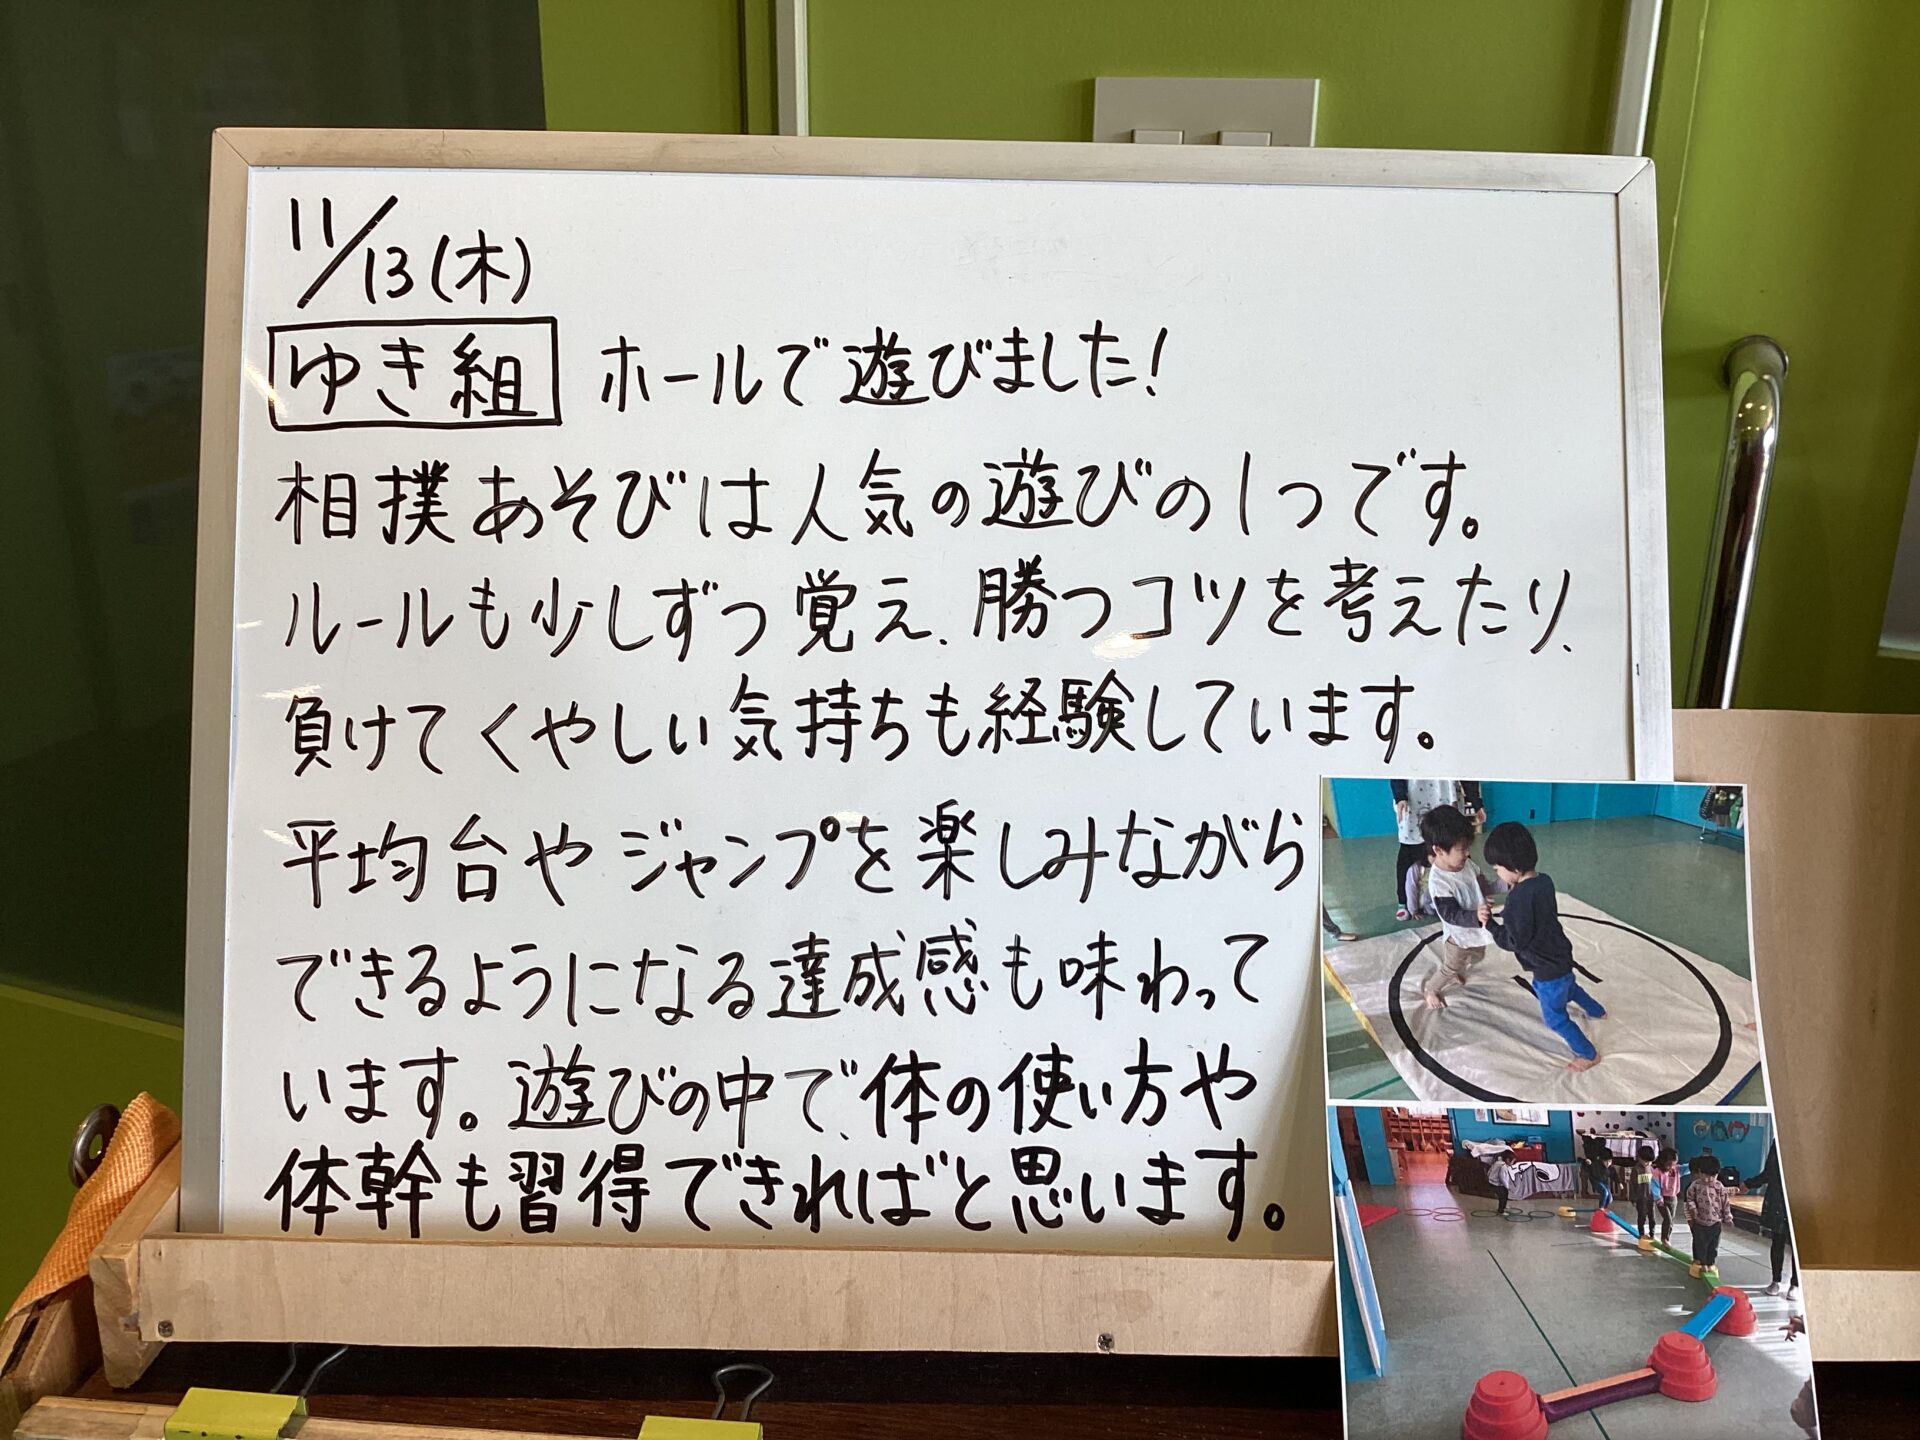 11/13(木)
ゆき組 ホールで遊びました!
相撲あそびは人気の遊びの1つです。
ルールも少しずつ覚え、勝つコツを考えたり、
負けてくやしい気持ちも経験しています。
平均台やジャンプを楽しみながら
できるようになる達成感も味わって
います。遊びの中で、体の使い方や
体幹も習得できればと思います。